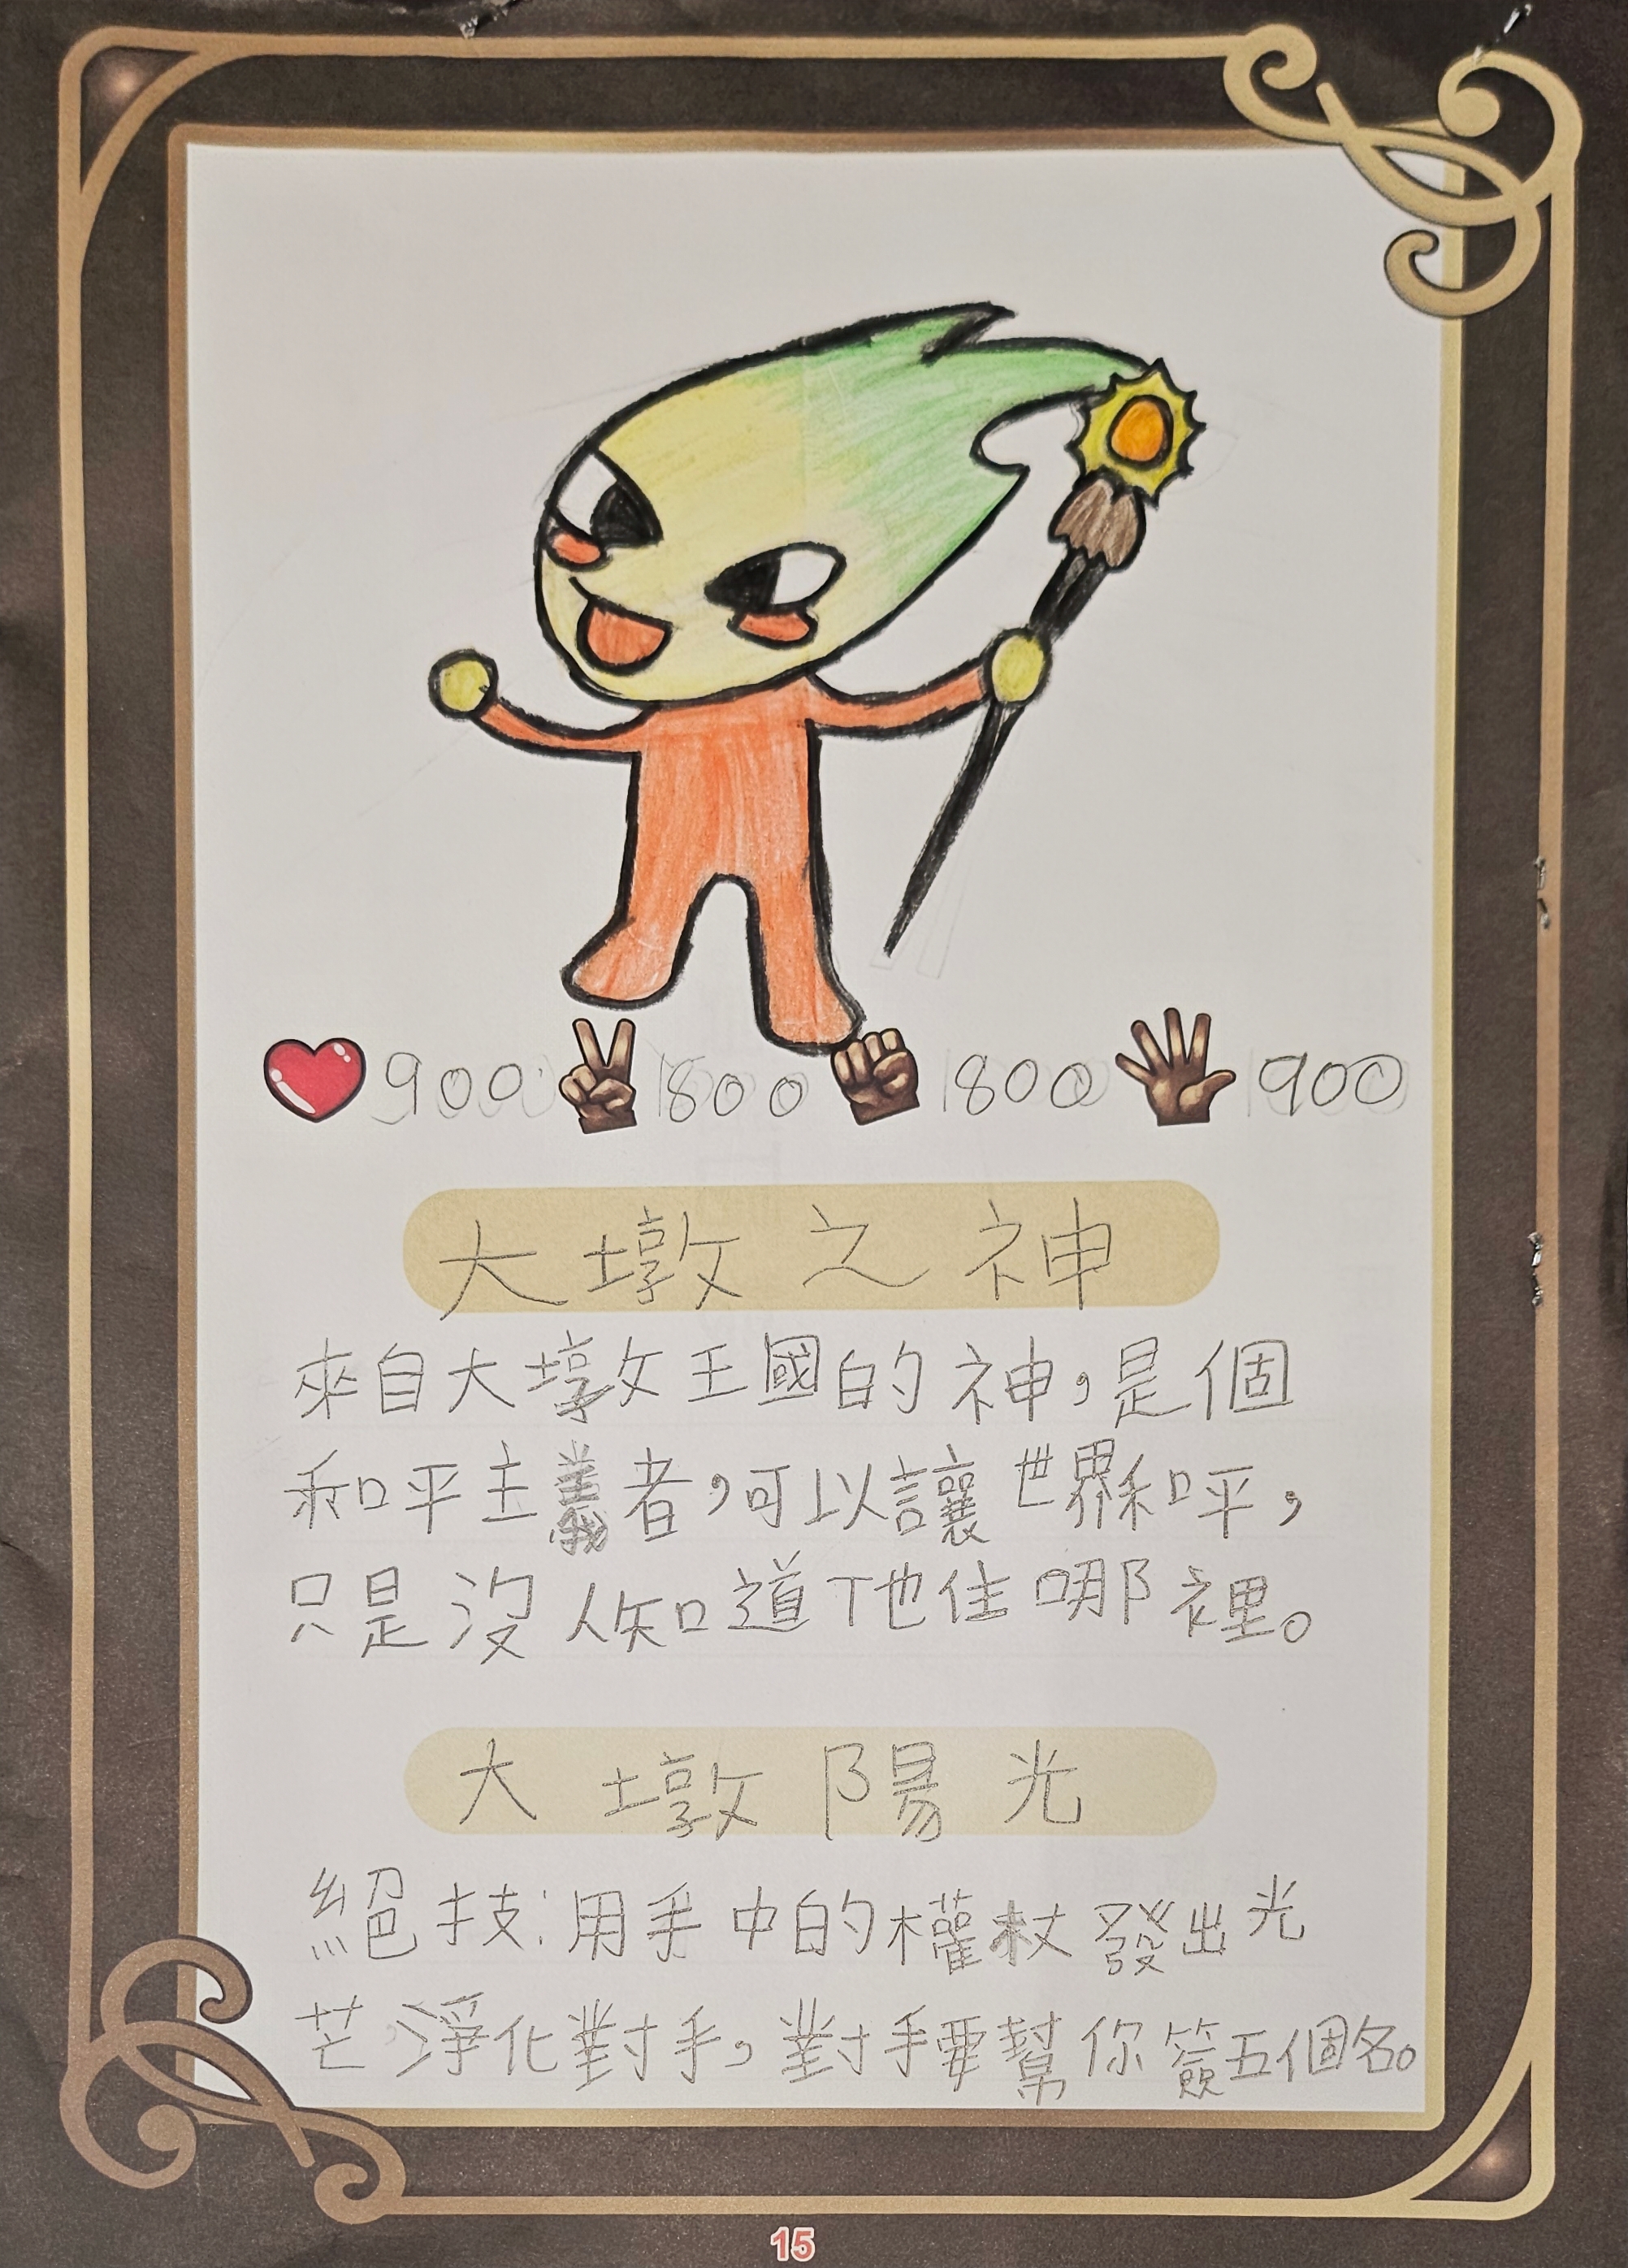 900 1800 1800 900
大墩之神
來自大墩王國的神，是個
和平主義者，可以讓世界和平，
只是沒人知道他住哪裡。
大墩陽光
絕技：用手中的權杖發出光
芒，淨化對手，對手要幫你簽五個名。
15